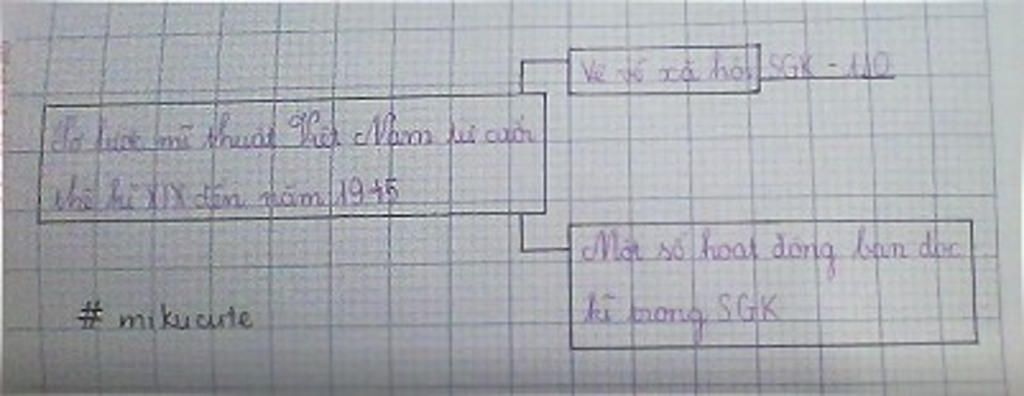 Vẽ về xã hội SGK - 110
Sơ lược mĩ thuật Việt Nam từ cuối
thế kỉ XIX đến năm 1945
Một số hoạt động bạn đọc
kĩ trong SGK
# mikucute